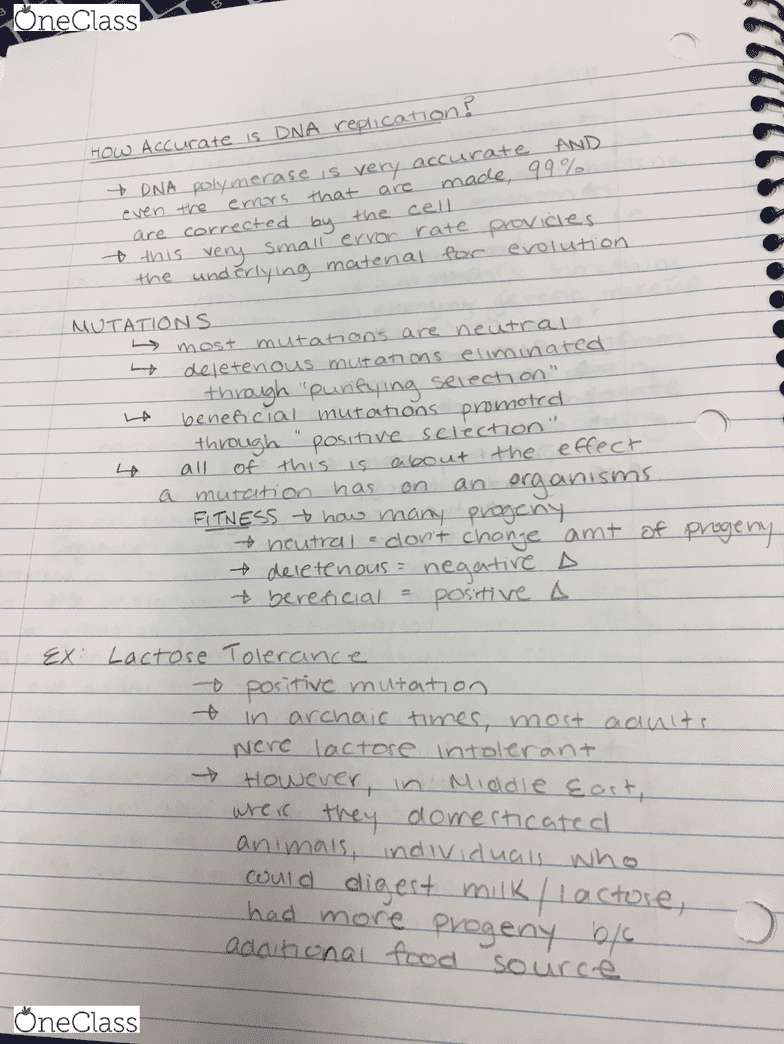 OneClass
How Accurate is DNA replication?
→ DNA polymerase is very accurate AND
even the errors that are made, 99%
are corrected by the cell
→ this very small error rate provides
the underlying material for evolution
MUTATIONS
↳ most mutations are neutral
↳ deleterious mutations eliminated
through "purifying selection"
↳ beneficial mutations promoted
through "positive selection"
↳ all of this is about the effect
a mutation has on an organisms
FITNESS → how many progeny
→ neutral = don't change amt of progeny
→ deleterious = negative Δ
→ beneficial = positive Δ
EX: Lactose Tolerance
→ positive mutation
→ in archaic times, most adults
were lactose intolerant
→ However, in Middle East,
were they domesticated
animals, individuals who
could digest milk/lactose,
had more progeny b/c
additional food source
OneClass